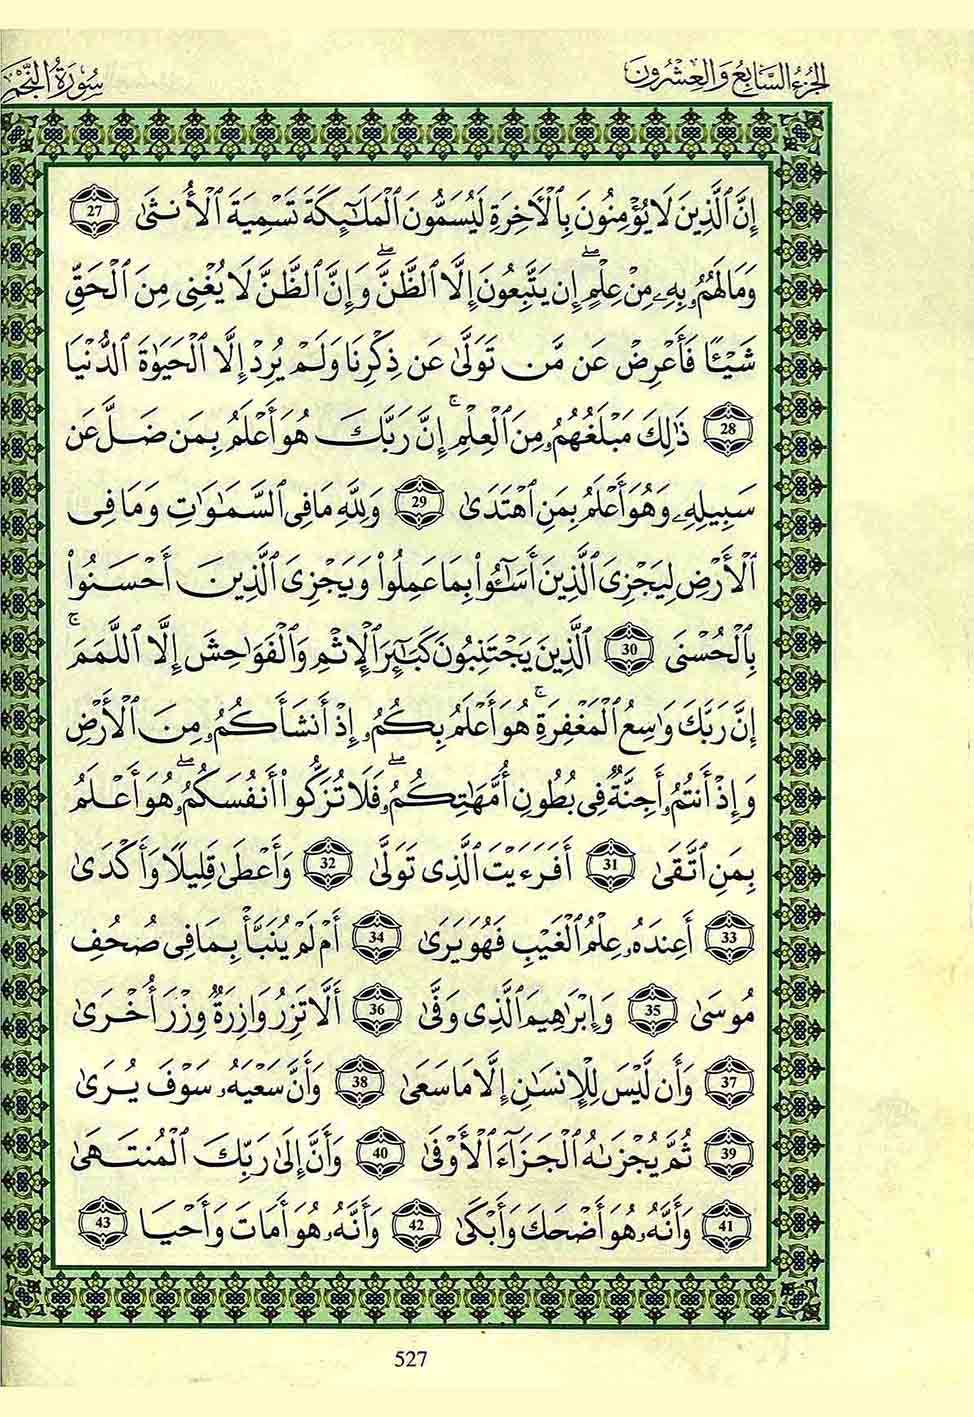 الجزء السابع والعشرون
سورة النجم
إِنَّ ٱلَّذِينَ لَا يُؤۡمِنُونَ بِٱلۡأٓخِرَةِ لَيُسَمُّونَ ٱلۡمَلَٰٓئِكَةَ تَسۡمِيَةَ ٱلۡأُنثَىٰ 27
وَمَا لَهُمُۥ بِهِۦ مِنۡ عِلۡمٍۖ إِن يَتَّبِعُونَ إِلَّا ٱلظَّنَّۖ وَإِنَّ ٱلظَّنَّ لَا يُغۡنِي مِنَ ٱلۡحَقِّ
شَيۡـٔٗا فَأَعۡرِضۡ عَن مَّن تَوَلَّىٰ عَن ذِكۡرِنَا وَلَمۡ يُرِدۡ إِلَّا ٱلۡحَيَوٰةَ ٱلدُّنۡيَا
28 ذَٰلِكَ مَبۡلَغُهُمُۥ مِنَ ٱلۡعِلۡمِۚ إِنَّ رَبَّكَ هُوَ أَعۡلَمُ بِمَن ضَلَّ عَن
سَبِيلِهِۦ وَهُوَ أَعۡلَمُ بِمَنِ ٱهۡتَدَىٰ 29 وَلِلَّهِ مَا فِي ٱلسَّمَٰوَٰتِ وَمَا فِي
ٱلۡأَرۡضِ لِيَجۡزِيَ ٱلَّذِينَ أَسَٰٓـُٔواْ بِمَا عَمِلُواْ وَيَجۡزِيَ ٱلَّذِينَ أَحۡسَنُواْ
بِٱلۡحُسۡنَى 30 ٱلَّذِينَ يَجۡتَنِبُونَ كَبَٰٓئِرَ ٱلۡإِثۡمِ وَٱلۡفَوَٰحِشَ إِلَّا ٱللَّمَمَۚ
إِنَّ رَبَّكَ وَٰسِعُ ٱلۡمَغۡفِرَةِۚ هُوَ أَعۡلَمُ بِكُمُۥ إِذۡ أَنشَأَكُمُۥ مِنَ ٱلۡأَرۡضِ
وَإِذۡ أَنتُمُۥ أَجِنَّةٞ فِي بُطُونِ أُمَّهَٰتِكُمُۥۖ فَلَا تُزَكُّوٓاْ أَنفُسَكُمُۥۖ هُوَ أَعۡلَمُ
بِمَنِ ٱتَّقَىٰ 31 أَفَرَءَيۡتَ ٱلَّذِي تَوَلَّىٰ 32 وَأَعۡطَىٰ قَلِيلٗا وَأَكۡدَىٰ
33 أَعِندَهُۥ عِلۡمُ ٱلۡغَيۡبِ فَهُوَ يَرَىٰ 34 أَمۡ لَمۡ يُنَبَّأۡ بِمَا فِي صُحُفِ
مُوسَىٰ 35 وَإِبۡرَٰهِيمَ ٱلَّذِي وَفَّىٰ 36 أَلَّا تَزِرُ وَازِرَةٞ وِزۡرَ أُخۡرَىٰ
37 وَأَن لَّيۡسَ لِلۡإِنسَٰنِ إِلَّا مَا سَعَىٰ 38 وَأَنَّ سَعۡيَهُۥ سَوۡفَ يُرَىٰ
39 ثُمَّ يُجۡزَىٰهُ ٱلۡجَزَآءَ ٱلۡأَوۡفَىٰ 40 وَأَنَّ إِلَىٰ رَبِّكَ ٱلۡمُنتَهَىٰ
41 وَأَنَّهُۥ هُوَ أَضۡحَكَ وَأَبۡكَىٰ 42 وَأَنَّهُۥ هُوَ أَمَاتَ وَأَحۡيَا 43
527